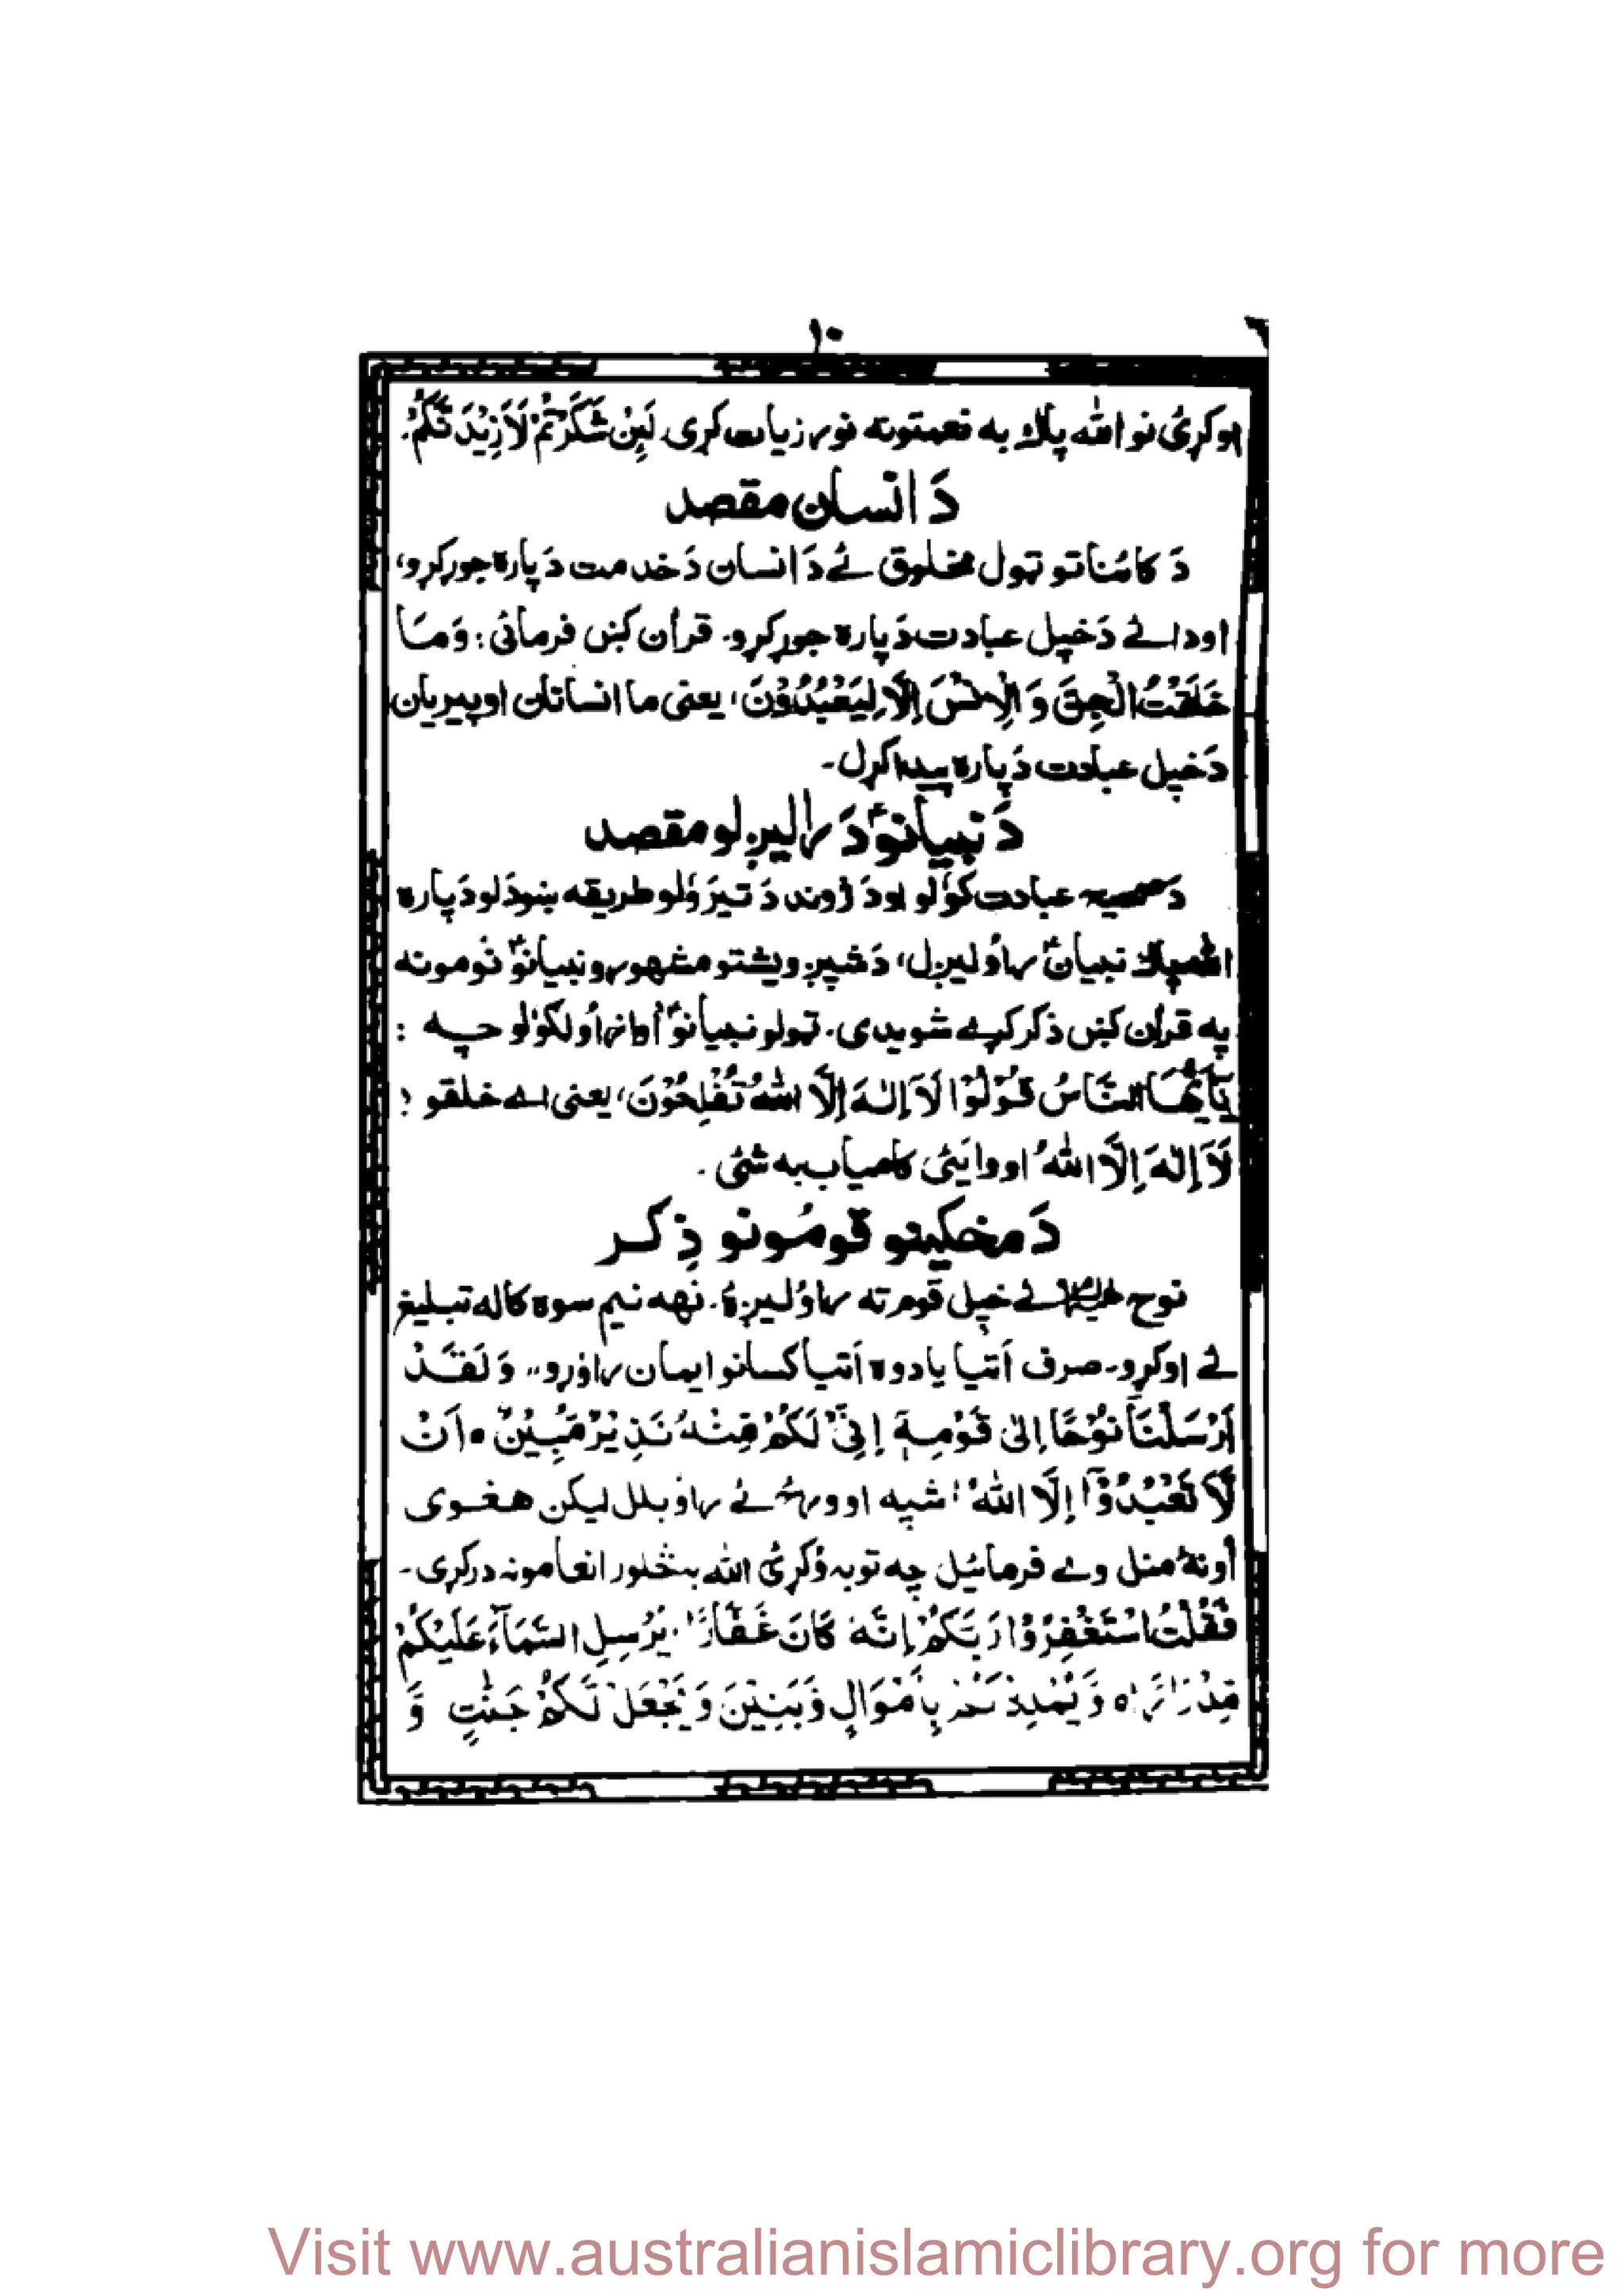 ١٠
اوکړئ نو الله پاك به نعمتونه نور زیات کړی. لَئِنْ شَکَرْتُمْ لَاَزِیْدَنَّکُمْ.
دَ انسان مقصد
دَ کائناتو ټول مخلوق ئے دَ انسان دَ خدمت دَ پاره جوړکړو،
اودائے دَ خپل عبادت دَ پاره جوړکړو۔ قرأن کښ فرمائی: وَمَا
خَلَقْتُ الْجِنَّ وَالْاِنْسَ اِلَّا لِیَعْبُدُوْنَ، یعنی ما انسانان او پیریان
دَ خپل عبادت دَ پاره پیدا کړل۔
دَ نبیانوؑ دَ رالیږلو مقصد
دَ عبادت کوٗلو او دَ ژوند دَ تیرَوٗلو طریقه ښودَلو دَ پاره
الله پاك نبیانؑ راوٗلیږل، دَ شپږ ویشتو مشهورو نبیانوؑ نومونه
په قرأن کښ ذکر کړے شویدی۔ ټولو نبیانوؑ أواز أولګوٗلو چه :
یٰٓاَیُّهَا النَّاسُ قُوْلُوْا لَآ اِلٰهَ اِلَّا اللهُ تُفْلِحُوْنَ، یعنی اے خلقو !
لَآ اِلٰهَ اِلَّا اللهُ اووایَئی کامیاب به شئی ۔
دَ مخکینو قومُونو ذِکر
نوح علیه السلام ئے خپل قوم ته راوٗلیږهٗ. نهه نیم سوه کاله تبلیغ
ئے اوکړو۔ صرف أتیا یا دوه أتیا کسانو ایمان راوٗړو،، وَلَقَدْ
اَرْسَلْنَا نُوْحًا اِلٰی قَوْمِهٖٓ اِنِّیْ لَکُمْ مِّنْهُ نَذِیْرٌ مُّبِیْنٌ ٥ اَنْ
لَّا تَعْبُدُوْٓا اِلَّا اللهَ، شپه او ورځ ئے راوٗبلل لیکن هغوی
أونهٗ منل وے فرمائیل چه توبه وٗکړئ الله به ښه ډیر انعامونه درکړی۔
فَقُلْتُ اسْتَغْفِرُوْا رَبَّکُمْ اِنَّهٗ کَانَ غَفَّارًا، یُرْسِلِ السَّمَآءَ عَلَیْکُمْ
مِّدْرَارًا ٥ وَّیُمْدِدْکُمْ بِاَمْوَالٍ وَّبَنِیْنَ وَیَجْعَلْ لَّکُمْ جَنّٰتٍ وَّ
Visit www.australianislamiclibrary.org for more